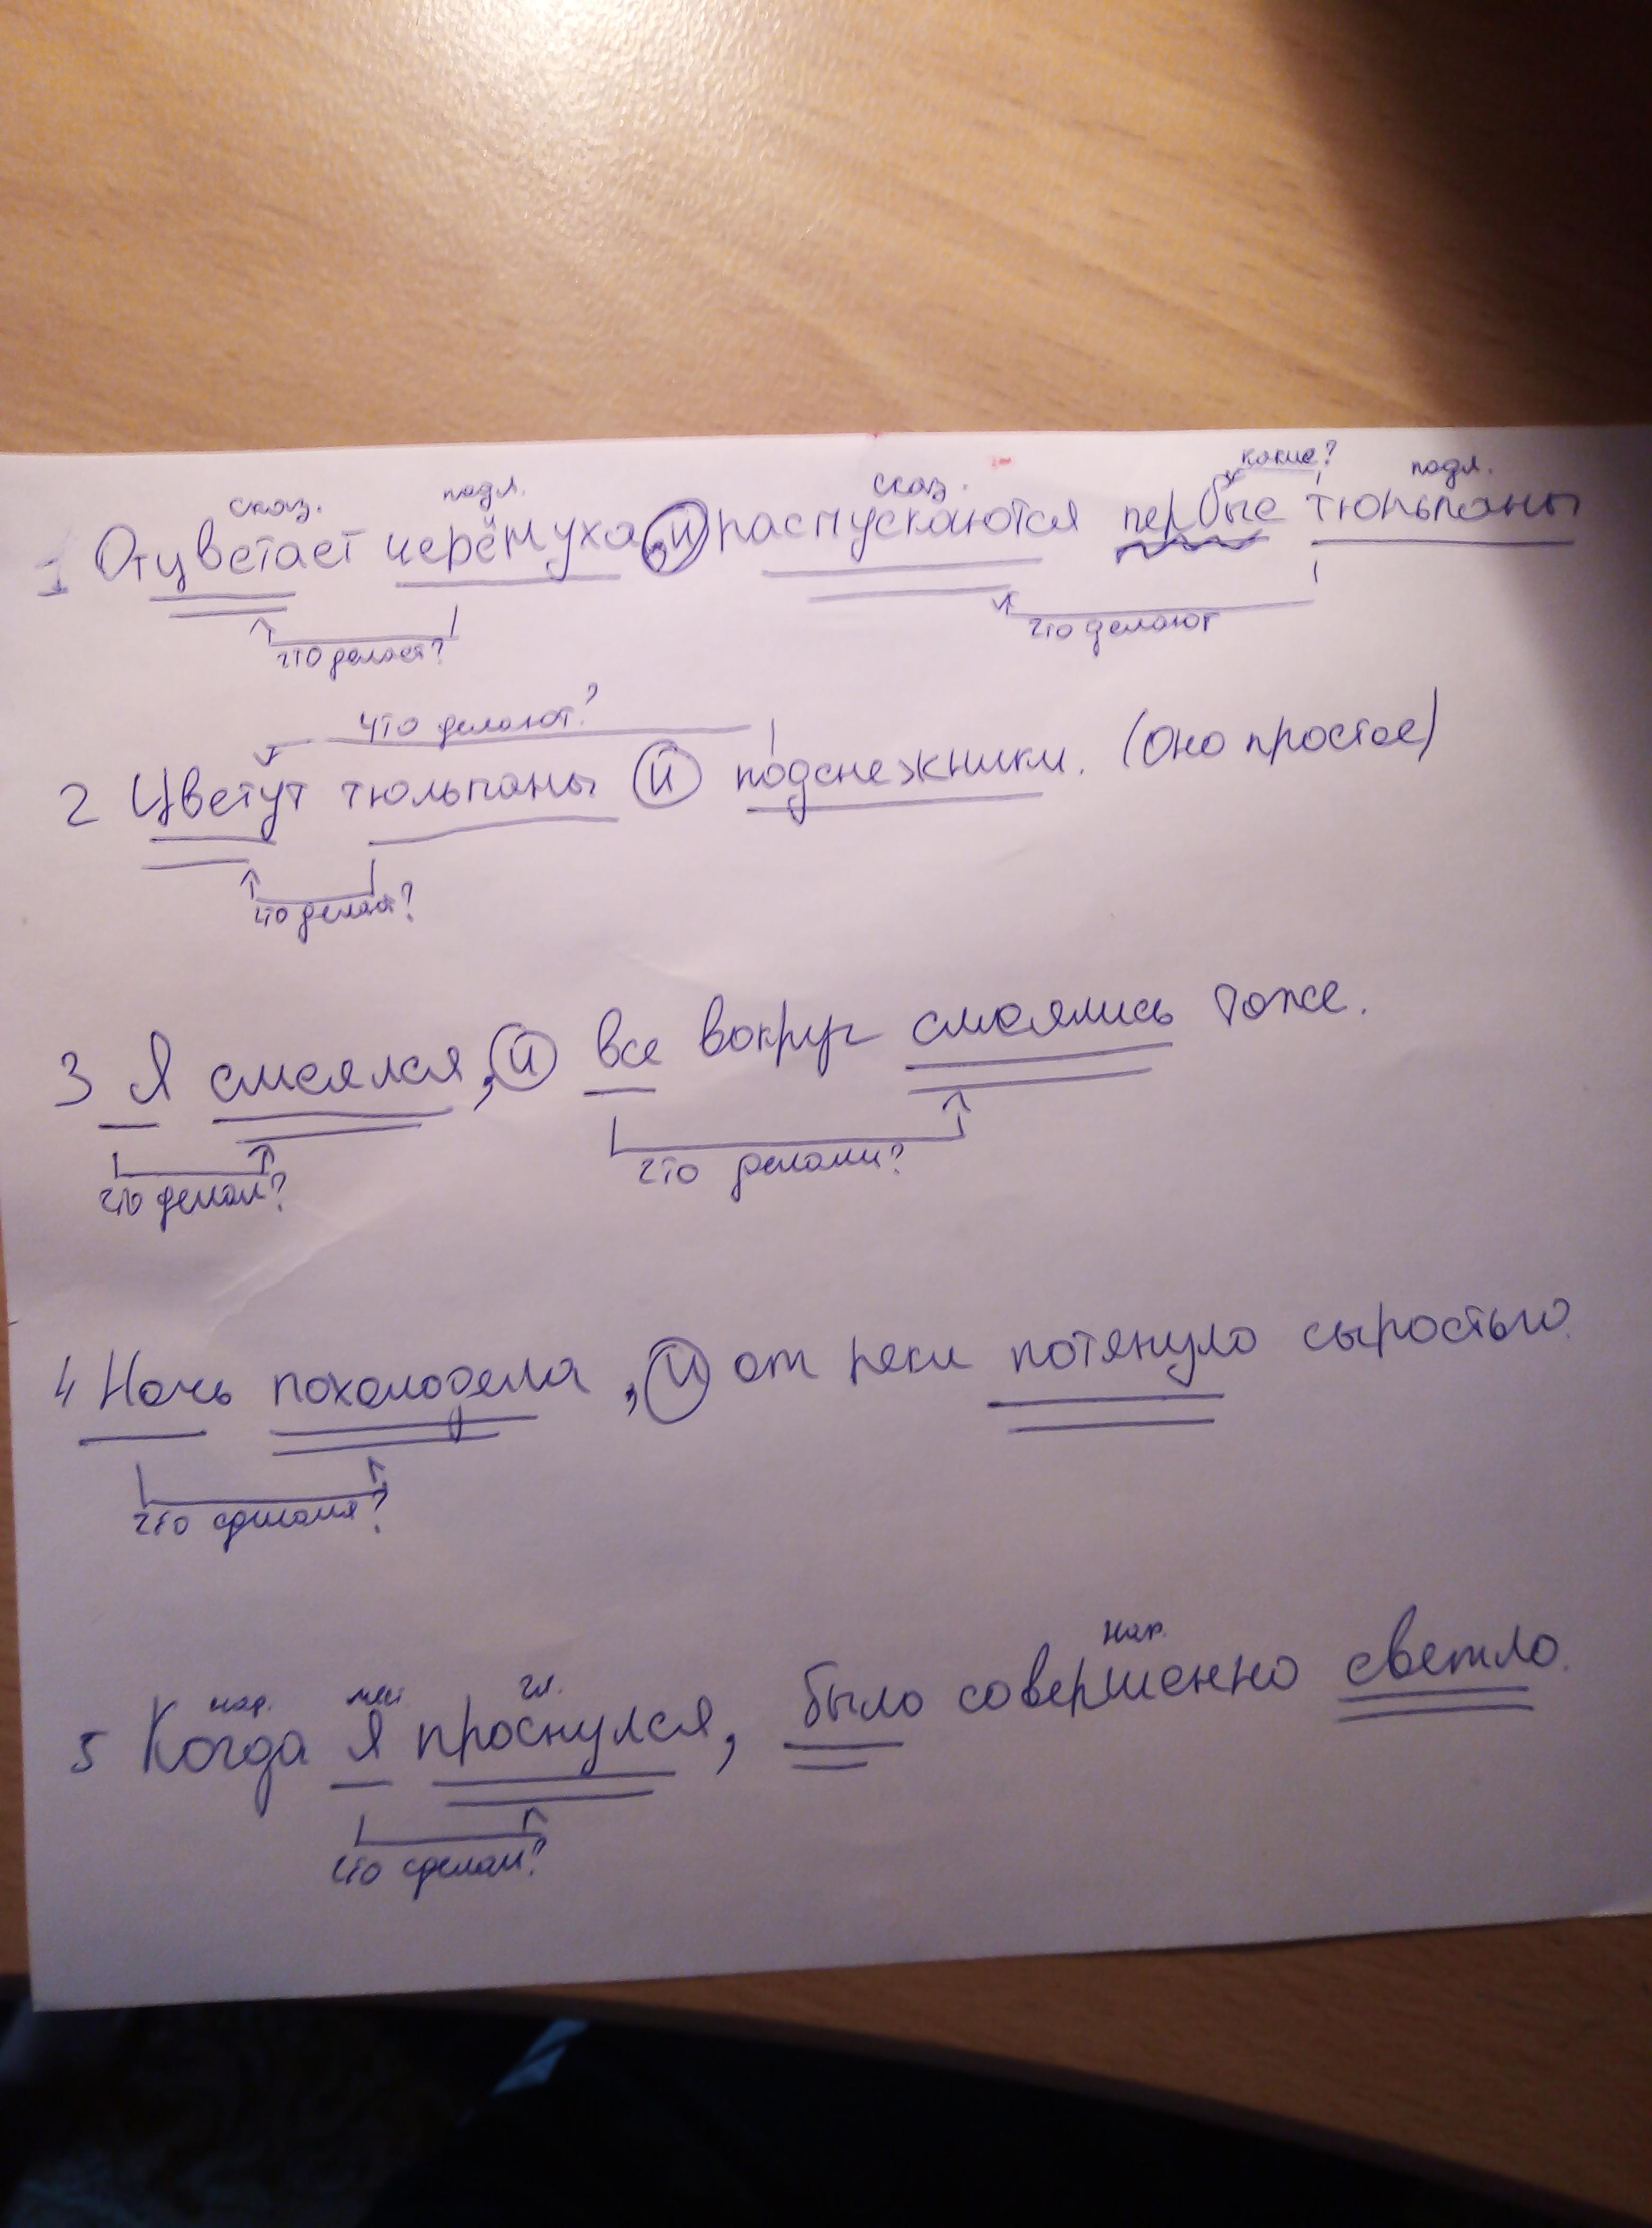 сказ. подл. сказ. какие? подл.
1 Отцветает черёмуха, и распускаются первые тюльпаны
что делает? что делают
что делают?
2 Цветут тюльпаны и подснежники. (Оно простое)
что делают?
3 Я смеялся, и все вокруг смеялись тоже.
что делал? что делали?
4 Ночь похолодела, и от реки потянуло сыростью.
что сделала?
нар. мес гл. нар.
5 Когда я проснулся, было совершенно светло.
что сделал?